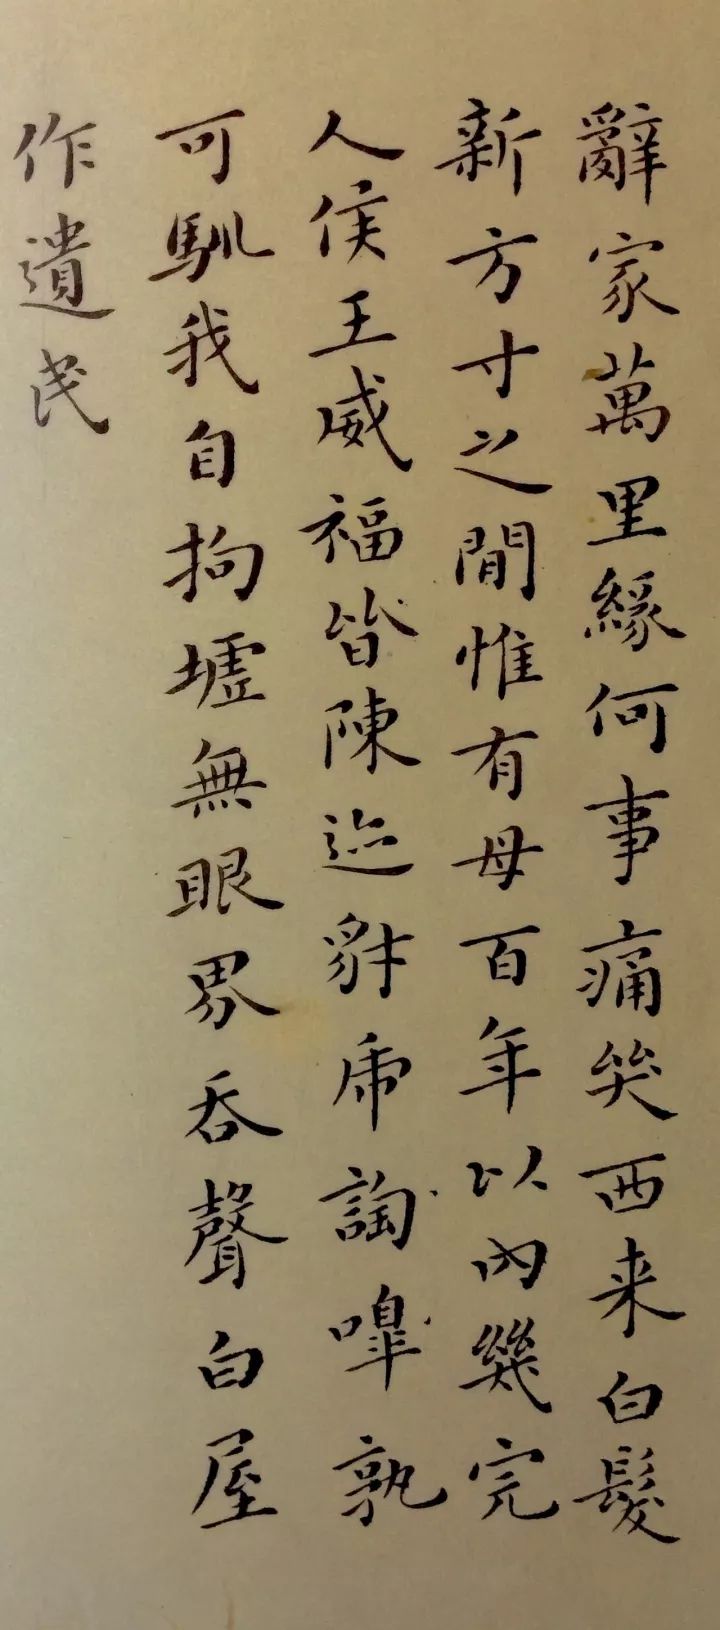 辭家萬里緣何事痛哭西来白髮
新方寸之間惟有母百年以內幾完
人侯王威福皆陳迹豺虎詾嘷孰
可馴我自拘墟無眼界吞聲白屋
作遺民